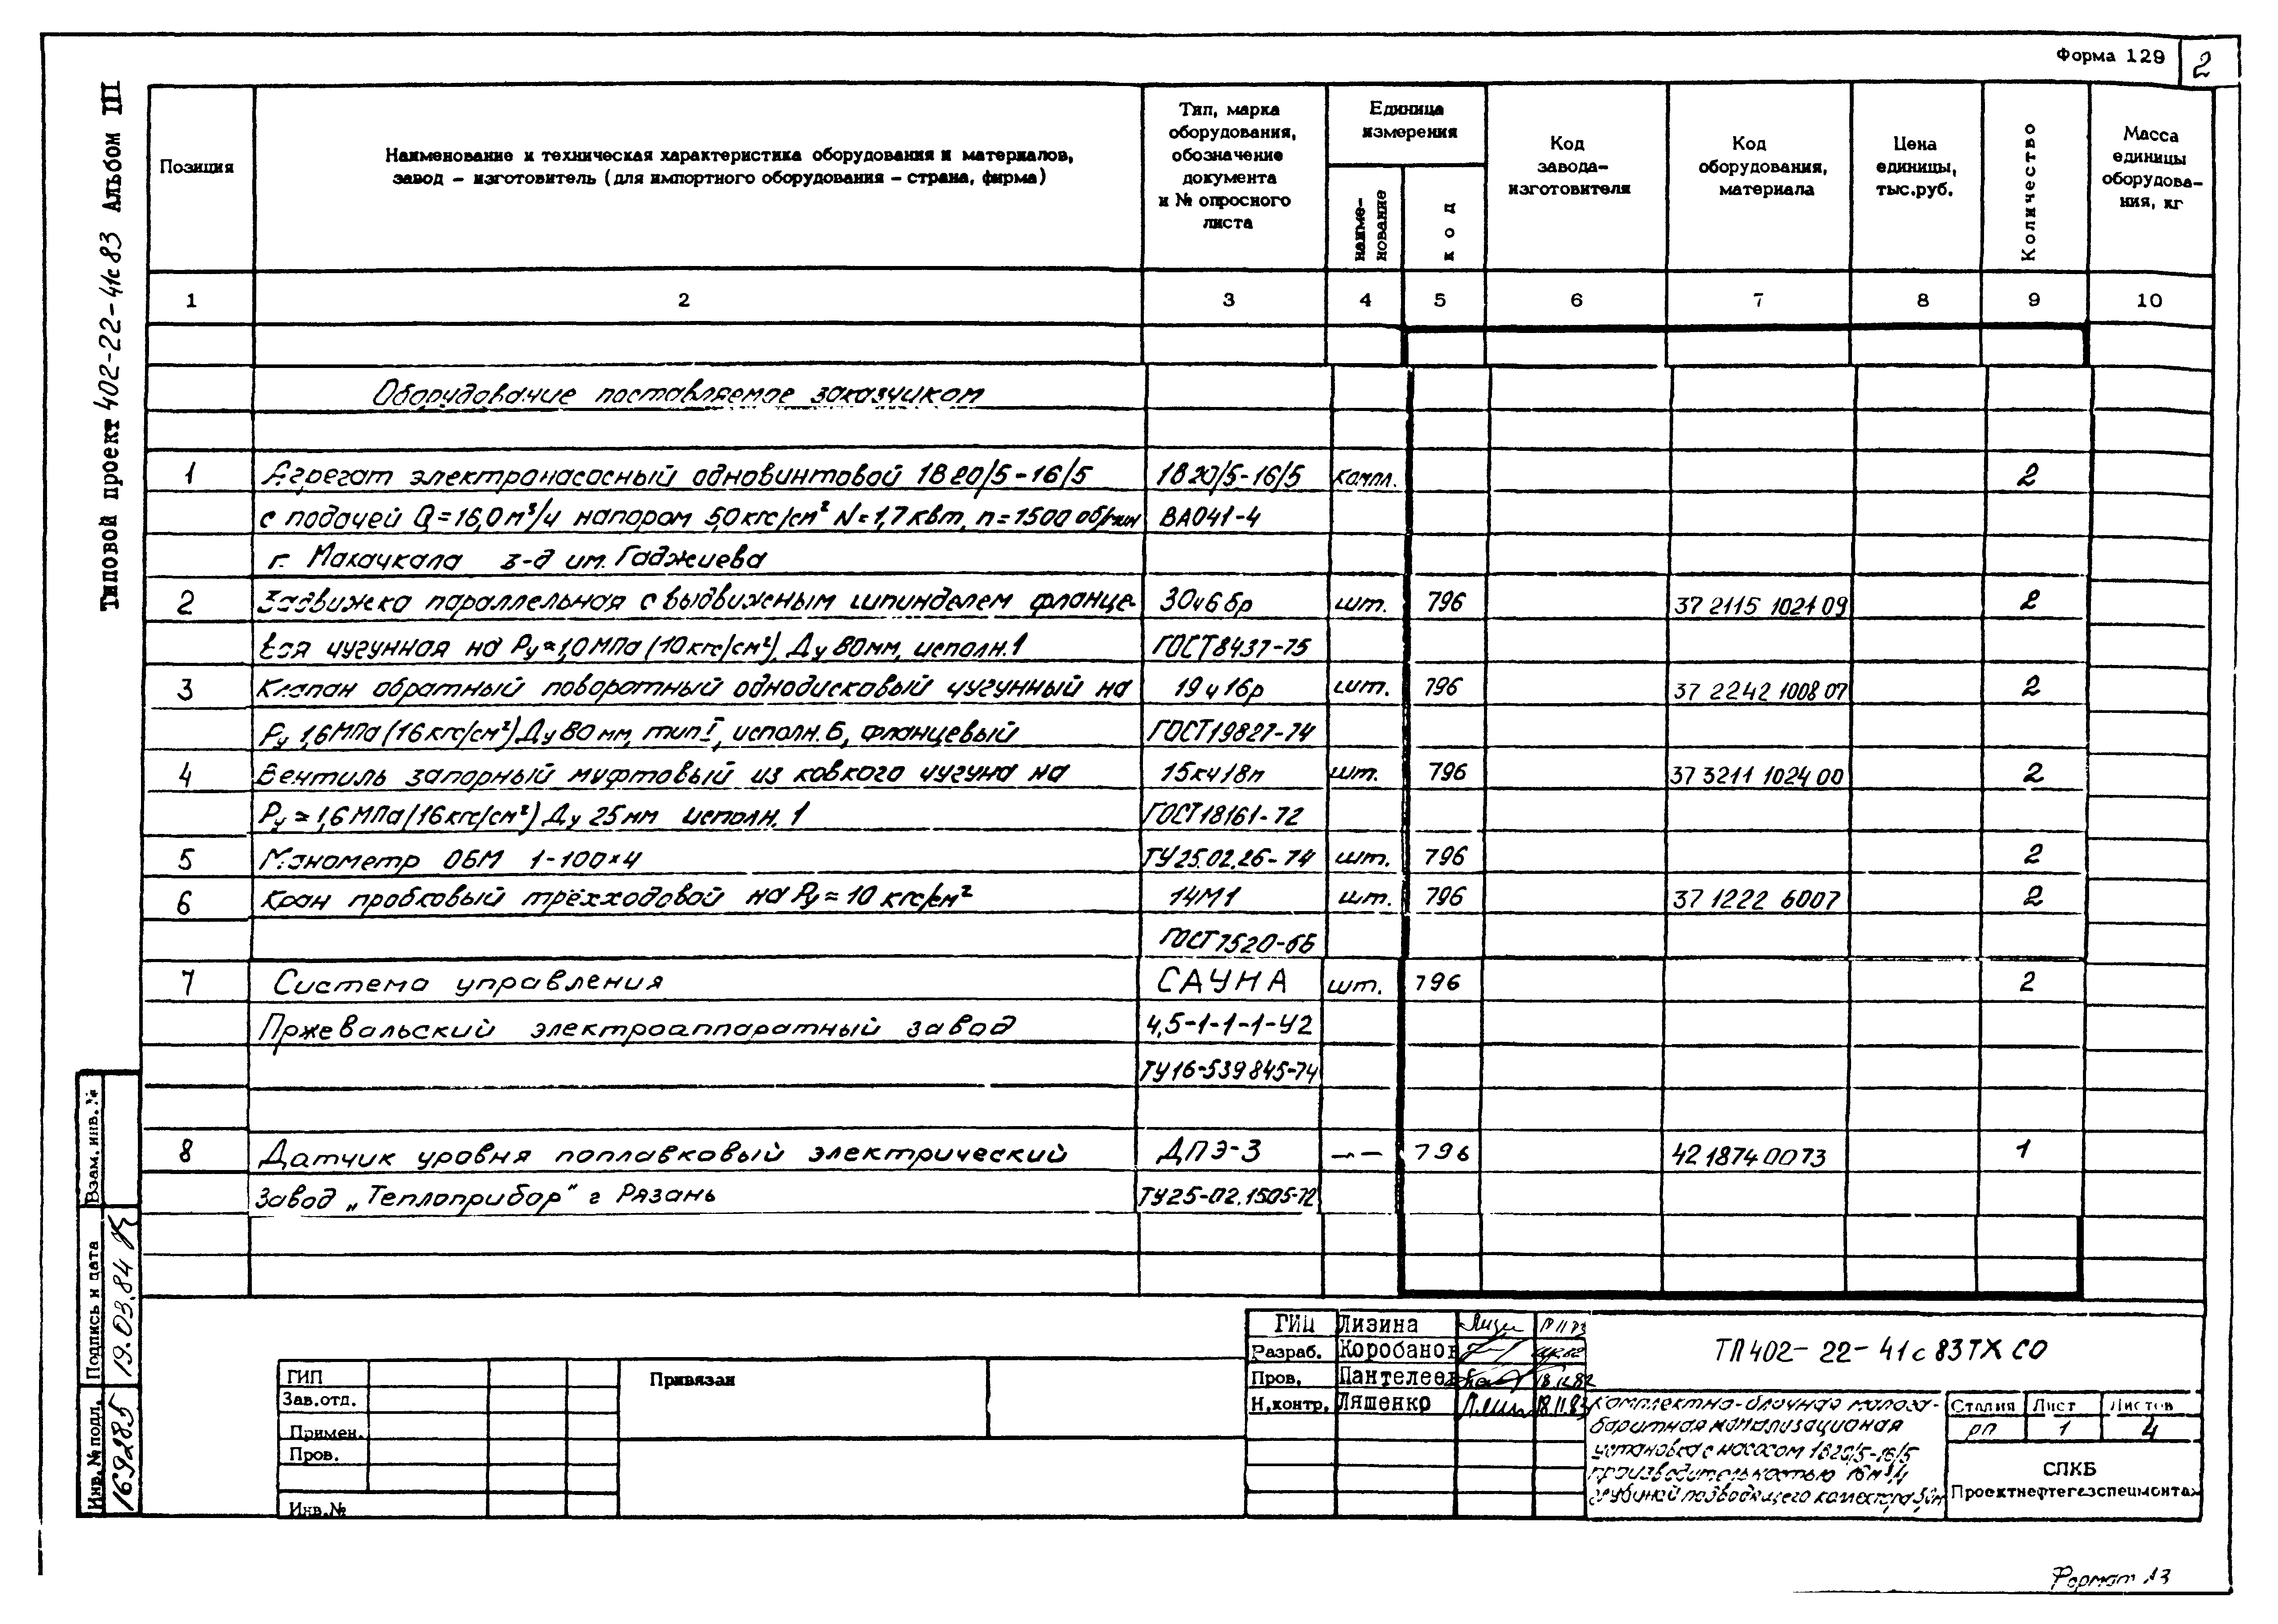 Форма 129
2
Типовой проект 402-22-41с83 Альбом III
Позиция
Наименование и техническая характеристика оборудования и материалов,
завод - изготовитель (для импортного оборудования - страна, фирма)
Тип, марка
оборудования,
обозначение
документа
и № опросного
листа
Единица
измерения
наиме-
нование
код
Код
завода-
изготовителя
Код
оборудования,
материала
Цена
единицы,
тыс.руб.
Количество
Масса
единицы
оборудова-
ния, кг
1 2 3 4 5 6 7 8 9 10
Оборудование поставляемое заказчиком
1 Агрегат электронасосный одновинтовой 1В20/5-16/5 1В20/5-16/5 компл. 2
с подачей Q=16,0м³/ч напором 5,0кгс/см² N=1,7квт, n=1500 об/мин ВА041-4
г. Махачкала з-д им. Гаджиева
2 Задвижка параллельная с выдвижным шпинделем фланце- 30ч6бр шт. 796 37 2115 1021 09 2
вая чугунная на Ру=1,0МПа (10кгс/см²), Ду 80мм, исполн.1 ГОСТ8437-75
3 Клапан обратный поворотный однодисковый чугунный на 19ч16р шт. 796 37 2242 1008 07 2
Ру 1,6МПа (16кгс/см²) Ду 80мм, тип I, исполн. Б, фланцевый ГОСТ19827-74
4 Вентиль запорный муфтовый из ковкого чугуна на 15кч18п шт. 796 37 3211 1024 00 2
Ру=1,6МПа (16кгс/см²) Ду 25мм исполн. 1 ГОСТ18161-72
5 Манометр ОБМ 1-100×4 ТУ25.02.26-74 шт. 796 2
6 Кран пробковый трёхходовой на Ру=10 кгс/см² 14М1 шт. 796 37 1222 6007 2
ГОСТ7520-66
7 Система управления САУНА шт. 796 2
Пржевальский электроаппаратный завод 4,5-1-1-1-У2
ТУ16-539845-74
8 Датчик уровня поплавковый электрический ДПЭ-3 —·— 796 42 1874 0073 1
Завод „Теплоприбор" г Рязань ТУ25-02.1505-72
Взам. инв. №
Подпись и дата
19.03.84
Инв. № подл.
169285
ГИП
Зав.отд.
Примен.
Пров.
Инв.№
Привязан
ГИП Лизина
Разраб. Коробанов
Пров. Пантелеев 18.11.82
Н.контр. Ляшенко 18.11.83
ТП402-22-41с83ТХ СО
Комплектно-блочная малога-
баритная канализационная
установка с насосом 1В20/5-16/5
производительностью 16м³/ч
глубиной подводящего коллектора 5,0м
Стадия Лист Листов
РП 1 4
СПКБ
Проектнефтегазспецмонтаж
Формат А3